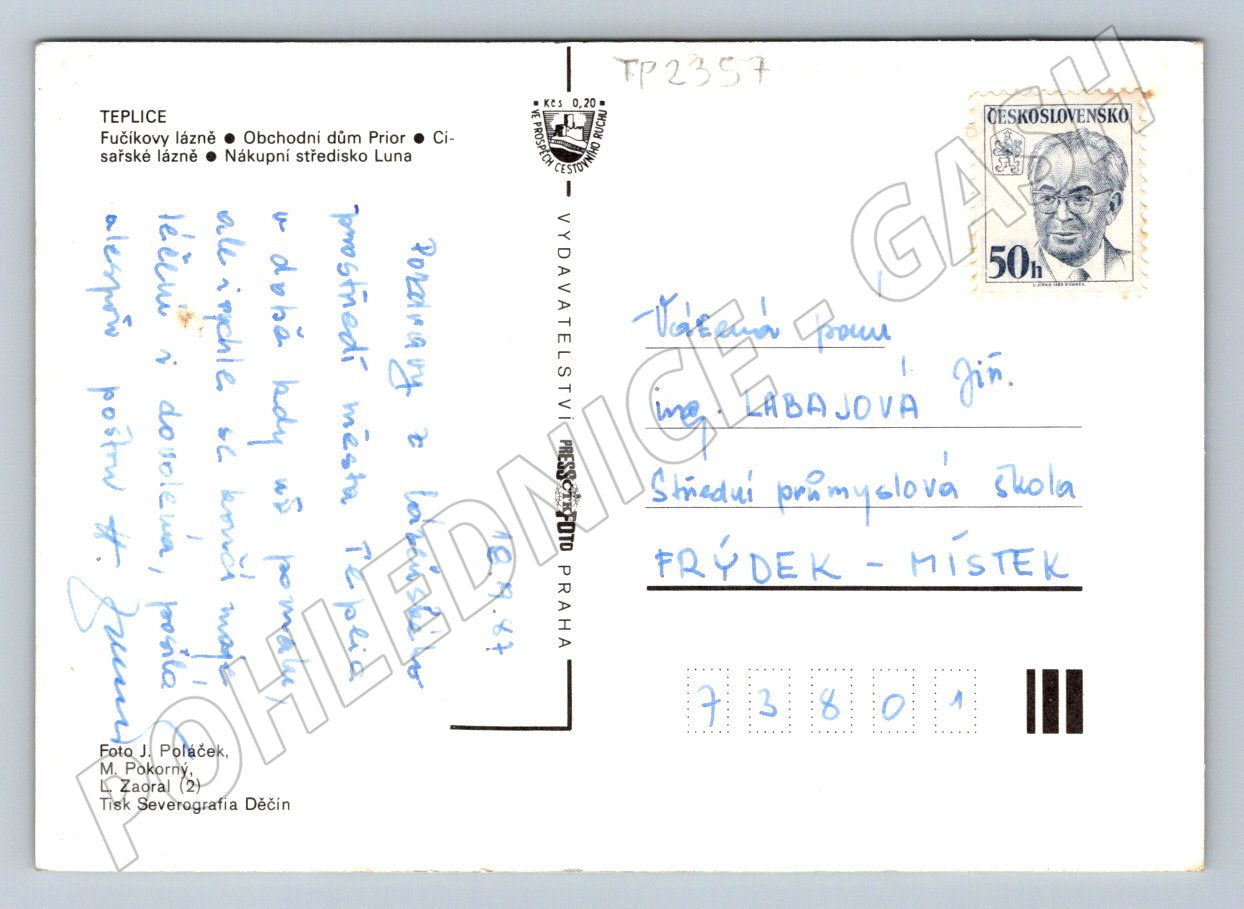 TP2357
TEPLICE
Fučíkovy lázně ● Obchodní dům Prior ● Cí-
sařské lázně ● Nákupní středisko Luna
Kčs 0,20
VE PROSPĚCH CESTOVNÍHO RUCHU
ČESKOSLOVENSKO
50h
Pozdravy z lázeňského
prostředí města Teplic
v době kdy už pomalu,
ale i rychle se končí moje
léčení i dovolená, posílá
alespoň poštou
VYDAVATELSTVÍ PRESSFOTO PRAHA
ČTK
Vážená paní
ing. LABAJOVÁ Jiř.
Střední průmyslová škola
FRÝDEK - MÍSTEK
73801
Foto J. Poláček,
M. Pokorný,
L. Zaoral (2)
Tisk Severografia Děčín
POHLEDNICE - GASH